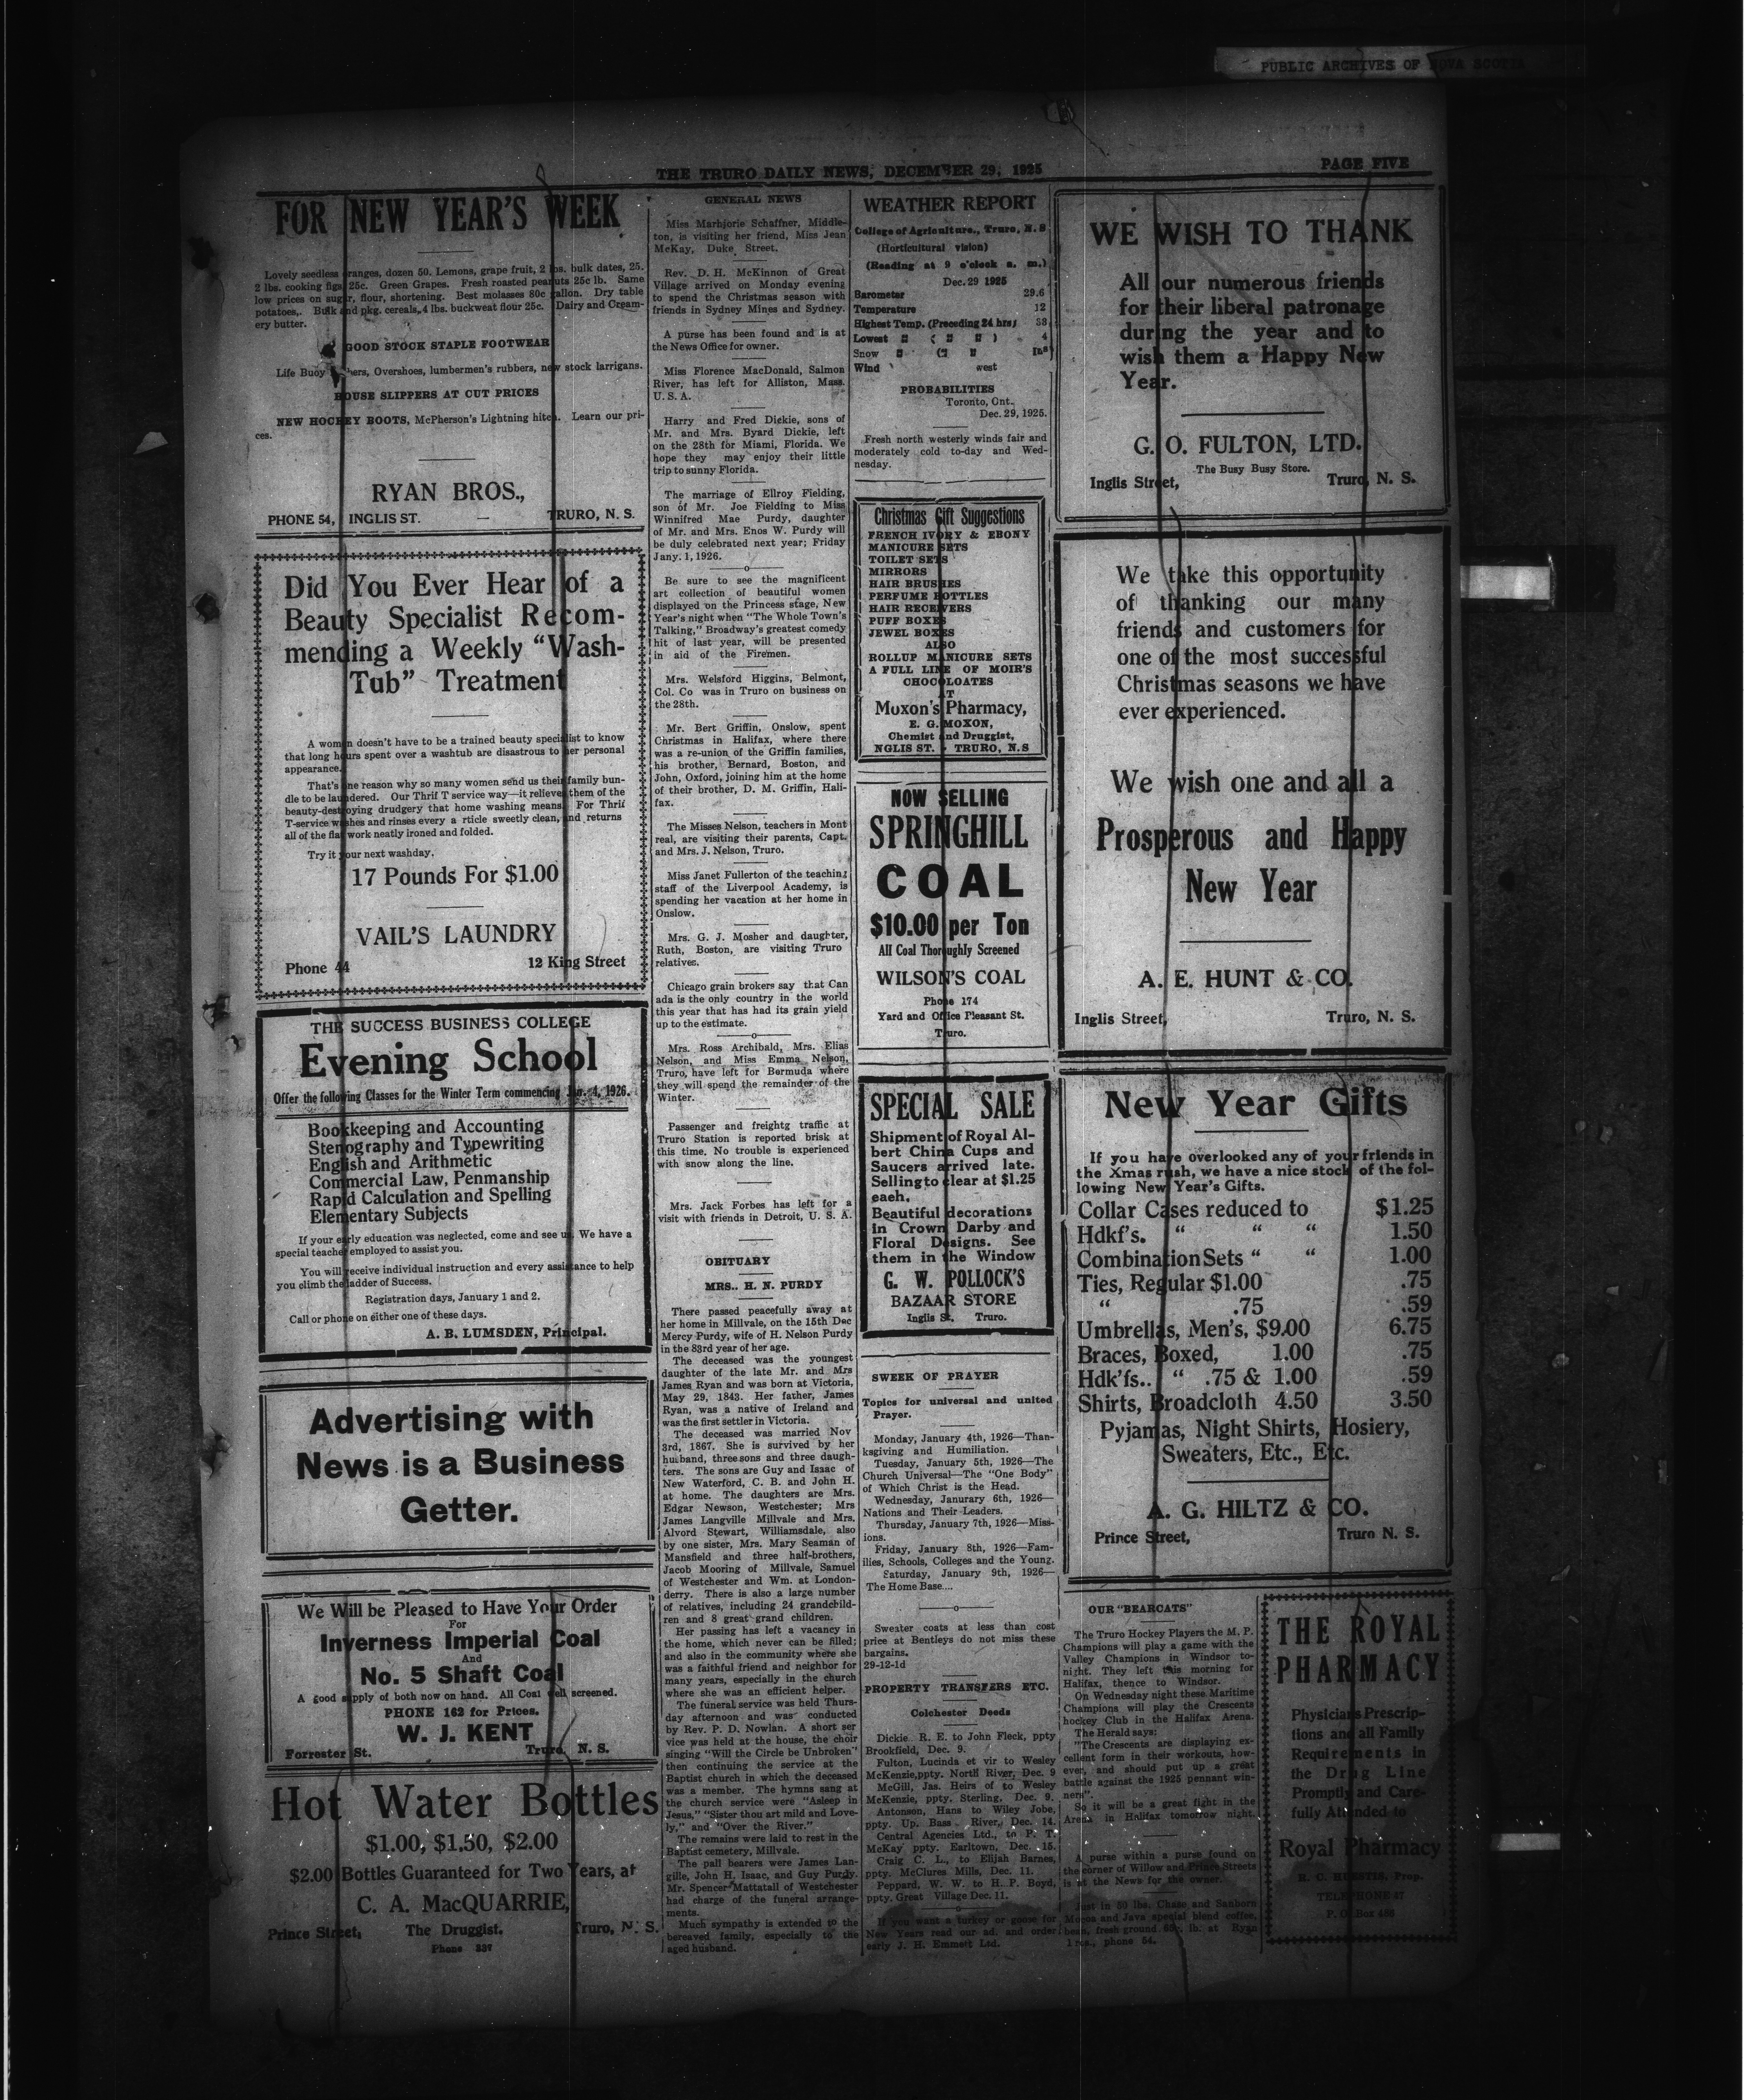 PUBLIC ARCHIVES OF NOVA SCOTIA
THE TRURO DAILY NEWS, DECEMBER 29, 1925
PAGE FIVE
FOR NEW YEAR'S WEEK
Lovely seedless oranges, dozen 50. Lemons, grape fruit, 2 lbs. bulk dates, 25.
2 lbs. cooking figs 25c. Green Grapes. Fresh roasted peanuts 25c lb. Same
low prices on sugar, flour, shortening. Best molasses 80c gallon. Dry table
potatoes,. Bulk and pkg. cereals, 4 lbs. buckweat flour 25c. Dairy and Cream-
ery butter.
GOOD STOCK STAPLE FOOTWEAR
Life Buoy hers, Overshoes, lumbermen's rubbers, new stock larrigans.
HOUSE SLIPPERS AT CUT PRICES
NEW HOCKEY BOOTS, McPherson's Lightning hitch. Learn our pri-
ces.
RYAN BROS.,
PHONE 54, INGLIS ST. — TRURO, N. S.
Did You Ever Hear of a
Beauty Specialist Recom-
mending a Weekly "Wash-
Tub" Treatment
A woman doesn't have to be a trained beauty specialist to know
that long hours spent over a washtub are disastrous to her personal
appearance.
That's one reason why so many women send us their family bun-
dle to be laundered. Our Thrif T service way—it relieves them of the
beauty-destroying drudgery that home washing means. For Thrif
T-service washes and rinses every a rticle sweetly clean, and returns
all of the flat work neatly ironed and folded.
Try it your next washday.
17 Pounds For $1.00
VAIL'S LAUNDRY
Phone 44 12 King Street
THE SUCCESS BUSINESS COLLEGE
Evening School
Offer the following Classes for the Winter Term commencing Jan. 4, 1926.
Bookkeeping and Accounting
Stenography and Typewriting
English and Arithmetic
Commercial Law, Penmanship
Rapid Calculation and Spelling
Elementary Subjects
If your early education was neglected, come and see us. We have a
special teacher employed to assist you.
You will receive individual instruction and every assistance to help
you climb the ladder of Success.
Registration days, January 1 and 2.
Call or phone on either one of these days.
A. B. LUMSDEN, Principal.
Advertising with
News is a Business
Getter.
We Will be Pleased to Have Your Order
For
Inverness Imperial Coal
And
No. 5 Shaft Coal
A good supply of both now on hand. All Coal well screened.
PHONE 162 for Prices.
W. J. KENT
Forrester St. Truro, N. S.
Hot Water Bottles
$1.00, $1.50, $2.00
$2.00 Bottles Guaranteed for Two Years, at
C. A. MacQUARRIE,
Prince Street, The Druggist. Truro, N. S.
Phone 337
GENERAL NEWS
Miss Marbjorie Schaffner, Middle-
ton, is visiting her friend, Miss Jean
McKay, Duke Street.
Rev. D. H. McKinnon of Great
Village arrived on Monday evening
to spend the Christmas season with
friends in Sydney Mines and Sydney.
A purse has been found and is at
the News Office for owner.
Miss Florence MacDonald, Salmon
River, has left for Alliston, Mass.
U. S. A.
Harry and Fred Dickie, sons of
Mr. and Mrs. Byard Dickie, left
on the 28th for Miami, Florida. We
hope they may enjoy their little
trip to sunny Florida.
The marriage of Ellroy Fielding,
son of Mr. Joe Fielding to Miss
Winnifred Mae Purdy, daughter
of Mr. and Mrs. Enos W. Purdy will
be duly celebrated next year; Friday
Jany. 1, 1926.
Be sure to see the magnificent
art collection of beautiful women
displayed on the Princess stage, New
Year's night when "The Whole Town's
Talking," Broadway's greatest comedy
hit of last year, will be presented
in aid of the Firemen.
Mrs. Welsford Higgins, Belmont,
Col. Co was in Truro on business on
the 28th.
Mr. Bert Griffin, Onslow, spent
Christmas in Halifax, where there
was a re-union of the Griffin families,
his brother, Bernard, Boston, and
John, Oxford, joining him at the home
of their brother, D. M. Griffin, Hali-
fax.
The Misses Nelson, teachers in Mont
real, are visiting their parents, Capt.
and Mrs. J. Nelson, Truro.
Miss Janet Fullerton of the teaching
staff of the Liverpool Academy, is
spending her vacation at her home in
Onslow.
Mrs. G. J. Mosher and daughter,
Ruth, Boston, are visiting Truro
relatives.
Chicago grain brokers say that Can
ada is the only country in the world
this year that has had its grain yield
up to the estimate.
Mrs. Ross Archibald, Mrs. Elias
Nelson, and Miss Emma Nelson,
Truro, have left for Bermuda where
they will spend the remainder of the
Winter.
Passenger and freightg traffic at
Truro Station is reported brisk at
this time. No trouble is experienced
with snow along the line.
Mrs. Jack Forbes has left for a
visit with friends in Detroit, U. S. A.
OBITUARY
MRS.. H. N. PURDY
There passed peacefully away at
her home in Millvale, on the 15th Dec
Mercy Purdy, wife of H. Nelson Purdy
in the 83rd year of her age.
The deceased was the youngest
daughter of the late Mr. and Mrs
James Ryan and was born at Victoria,
May 29, 1843. Her father, James
Ryan, was a native of Ireland and
was the first settler in Victoria.
The deceased was married Nov
3rd, 1867. She is survived by her
husband, three sons and three daugh-
ters. The sons are Guy and Isaac of
New Waterford, C. B. and John H.
at home. The daughters are Mrs.
Edgar Newson, Westchester; Mrs
James Langville Millvale and Mrs.
Alvord Stewart, Williamsdale, also
by one sister, Mrs. Mary Seaman of
Mansfield and three half-brothers,
Jacob Mooring of Millvale, Samuel
of Westchester and Wm. at London-
derry. There is also a large number
of relatives, including 24 grandchild-
ren and 8 great grand children.
Her passing has left a vacancy in
the home, which never can be filled;
and also in the community where she
was a faithful friend and neighbor for
many years, especially in the church
where she was an efficient helper.
The funeral service was held Thurs-
day afternoon and was conducted
by Rev. P. D. Nowlan. A short ser
vice was held at the house, the choir
singing "Will the Circle be Unbroken"
then continuing the service at the
Baptist church in which the deceased
was a member. The hymns sang at
the church service were "Asleep in
Jesus," "Sister thou art mild and Love-
ly," and "Over the River."
The remains were laid to rest in the
Baptist cemetery, Millvale.
The pall bearers were James Lan-
gille, John H. Isaac, and Guy Purdy.
Mr. Spencer Mattatall of Westchester
had charge of the funeral arrange-
ments.
Much sympathy is extended to the
bereaved family, especially to the
aged husband.
WEATHER REPORT
College of Agriculture., Truro, N. S
(Horticultural vision)
(Reading at 9 o'clock a. m.)
Dec. 29 1925
Barometer 29.6
Temperature 12
Highest Temp. (Preceding 24 hrs) 38
Lowest " ( " " ) 4
Snow " (" " Ins)
Wind west
PROBABILITIES
Toronto, Ont.
Dec. 29, 1925.
Fresh north westerly winds fair and
moderately cold to-day and Wed-
nesday.
Christmas Gift Suggestions
FRENCH IVORY & EBONY
MANICURE SETS
TOILET SETS
MIRRORS
HAIR BRUSHES
PERFUME BOTTLES
HAIR RECEIVERS
PUFF BOXES
JEWEL BOXES
ALSO
ROLLUP MANICURE SETS
A FULL LINE OF MOIR'S
CHOCOLOATES
AT
Moxon's Pharmacy,
E. G. MOXON,
Chemist and Druggist,
NGLIS ST. - TRURO, N.S
NOW SELLING
SPRINGHILL
COAL
$10.00 per Ton
All Coal Thoroughly Screened
WILSON'S COAL
Phone 174
Yard and Office Pleasant St.
Truro.
SPECIAL SALE
Shipment of Royal Al-
bert China Cups and
Saucers arrived late.
Selling to clear at $1.25
each.
Beautiful decorations
in Crown Darby and
Floral Designs. See
them in the Window
G. W. POLLOCK'S
BAZAAR STORE
Inglis St. Truro.
SWEEK OF PRAYER
Topics for universal and united
Prayer.
Monday, January 4th, 1926—Than-
ksgiving and Humiliation.
Tuesday, January 5th, 1926—The
Church Universal—The "One Body"
of Which Christ is the Head.
Wednesday, Janurary 6th, 1926—
Nations and Their Leaders.
Thursday, January 7th, 1926—Miss-
ions.
Friday, January 8th, 1926—Fam-
ilies, Schools, Colleges and the Young.
Saturday, January 9th, 1926—
The Home Base....
Sweater coats at less than cost
price at Bentleys do not miss these
bargains.
29-12-1d
PROPERTY TRANSFERS ETC.
Colchester Deeds
Dickie R. E. to John Fleck, ppty
Brookfield, Dec. 9.
Fulton, Lucinda et vir to Wesley
McKenzie, ppty. North River, Dec. 9
McGill, Jas. Heirs of to Wesley
McKenzie, ppty. Sterling, Dec. 9.
Antonson, Hans to Wiley Jobe,
ppty. Up. Bass River, Dec. 14.
Central Agencies Ltd., to P. T.
McKay ppty. Earltown, Dec. 15.
Craig C. L., to Elijah Barnes,
ppty. McClures Mills, Dec. 11.
Peppard, W. W. to H. P. Boyd,
ppty. Great Village Dec. 11.
If you want a turkey or goose for
New Years read our ad. and order
early J. H. Emmett Ltd.
WE WISH TO THANK
All our numerous friends
for their liberal patronage
during the year and to
wish them a Happy New
Year.
G. O. FULTON, LTD.
The Busy Busy Store.
Inglis Street, Truro, N. S.
We take this opportunity
of thanking our many
friends and customers for
one of the most successful
Christmas seasons we have
ever experienced.
We wish one and all a
Prosperous and Happy
New Year
A. E. HUNT & CO.
Inglis Street, Truro, N. S.
New Year Gifts
If you have overlooked any of your friends in
the Xmas rush, we have a nice stock of the fol-
lowing New Year's Gifts.
Collar Cases reduced to $1.25
Hdkf's. " " " 1.50
Combination Sets " " 1.00
Ties, Regular $1.00 .75
" .75 .59
Umbrellas, Men's, $9.00 6.75
Braces, Boxed, 1.00 .75
Hdk'fs.. " .75 & 1.00 .59
Shirts, Broadcloth 4.50 3.50
Pyjamas, Night Shirts, Hosiery,
Sweaters, Etc., Etc.
A. G. HILTZ & CO.
Prince Street, Truro N. S.
OUR "BEARCATS"
The Truro Hockey Players the M. P.
Champions will play a game with the
Valley Champions in Windsor to-
night. They left this morning for
Halifax, thence to Windsor.
On Wednesday night these Maritime
Champions will play the Crescents
hockey Club in the Halifax Arena.
The Herald says:
"The Crescents are displaying ex-
cellent form in their workouts, how-
ever, and should put up a great
battle against the 1925 pennant win-
ners".
So it will be a great fight in the
Arena in Halifax tomorrow night.
A purse within a purse found on
the corner of Willow and Prince Streets
is at the News for the owner.
Just in 50 lbs. Chase and Sanborn
Mocoa and Java special blend coffee,
bean, fresh ground lb. at Ryan
Bros., phone 54.
THE ROYAL
PHARMACY
Physicians Prescrip-
tions and all Family
Requirements in
the Drug Line
Promptly and Care-
fully Attended to
Royal Pharmacy
H. C. HUESTIS, Prop.
TELEPHONE 47
P. O. Box 486